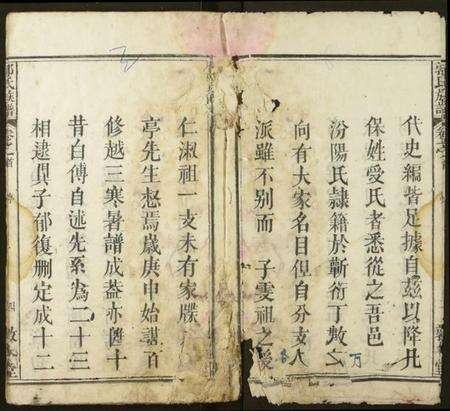 代史編皆足據自茲以降凡
保姓受氏者悉從之吾邑
汾陽氏隸籍於蘄衍丁數
万
向有大家名目但自分支人
派雖不别而 子雯祖之後
仁淑祖一支未有家牒
亭先生惄焉歲庚申始謀
修越三寒暑譜成蓋亦匯十
昔白傅自述先系為二十三
相逮眞子郁復刪定成十二
氏族譜
四
堂